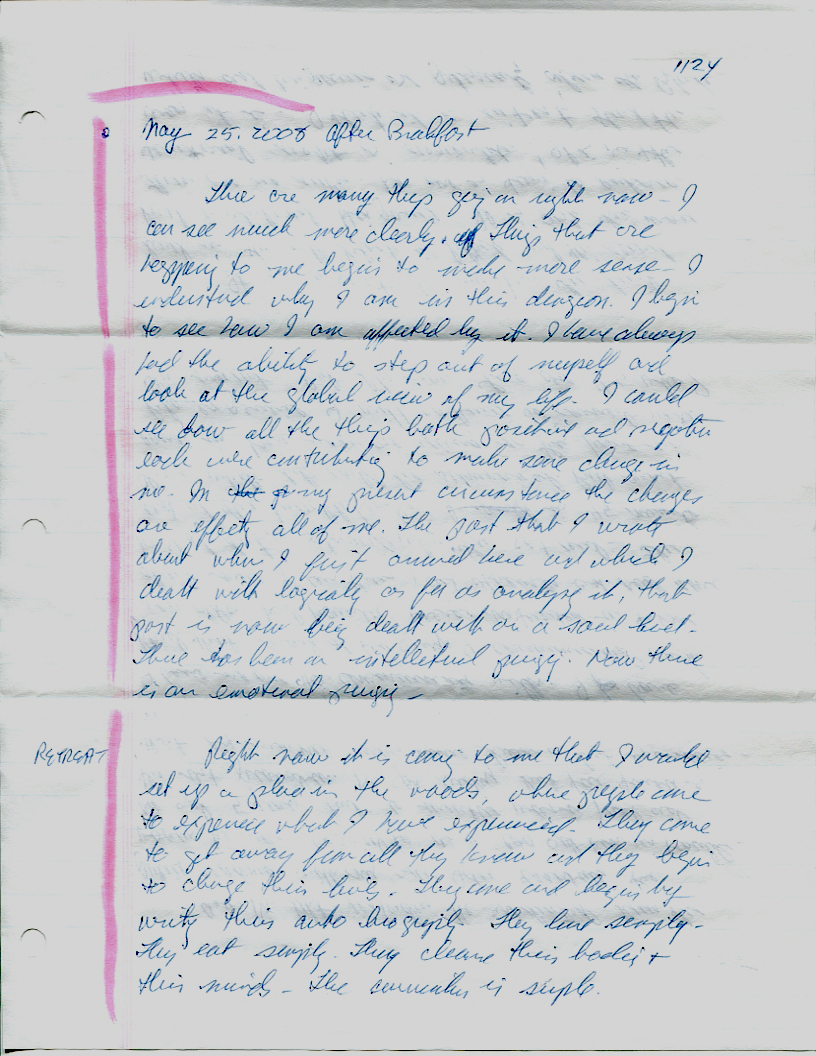 1124
May 25. 2008 after Brakfast
There are many things going on right now - I
can see much more clearly. Things that are
happening to me begin to make more sense - I
understand why I am in this dungeon. I begin
to see how I am affected by it. I have always
had the ability to step out of myself and
look at the global view of my life. I could
see how all the things both positive and negative
each were contributing to make some change in
me. In my present circumstance the changes
are effecting all of me. The past that I wrote
about when I first arrived here and which I
dealt with logically as far as analyzing it, that
past is now being dealt with on a soul level.
There has been an intellectual purging. Now there
is an emotional purging -
RETREAT
Right now it is coming to me that I would
set up a place in the woods, where people come
to experience what I have experienced. They come
to get away from all they know and they begin
to change their lives. They come and begin by
writing their auto biography. They live simply -
They eat simply. They cleanse their bodies +
their minds - The is simple.